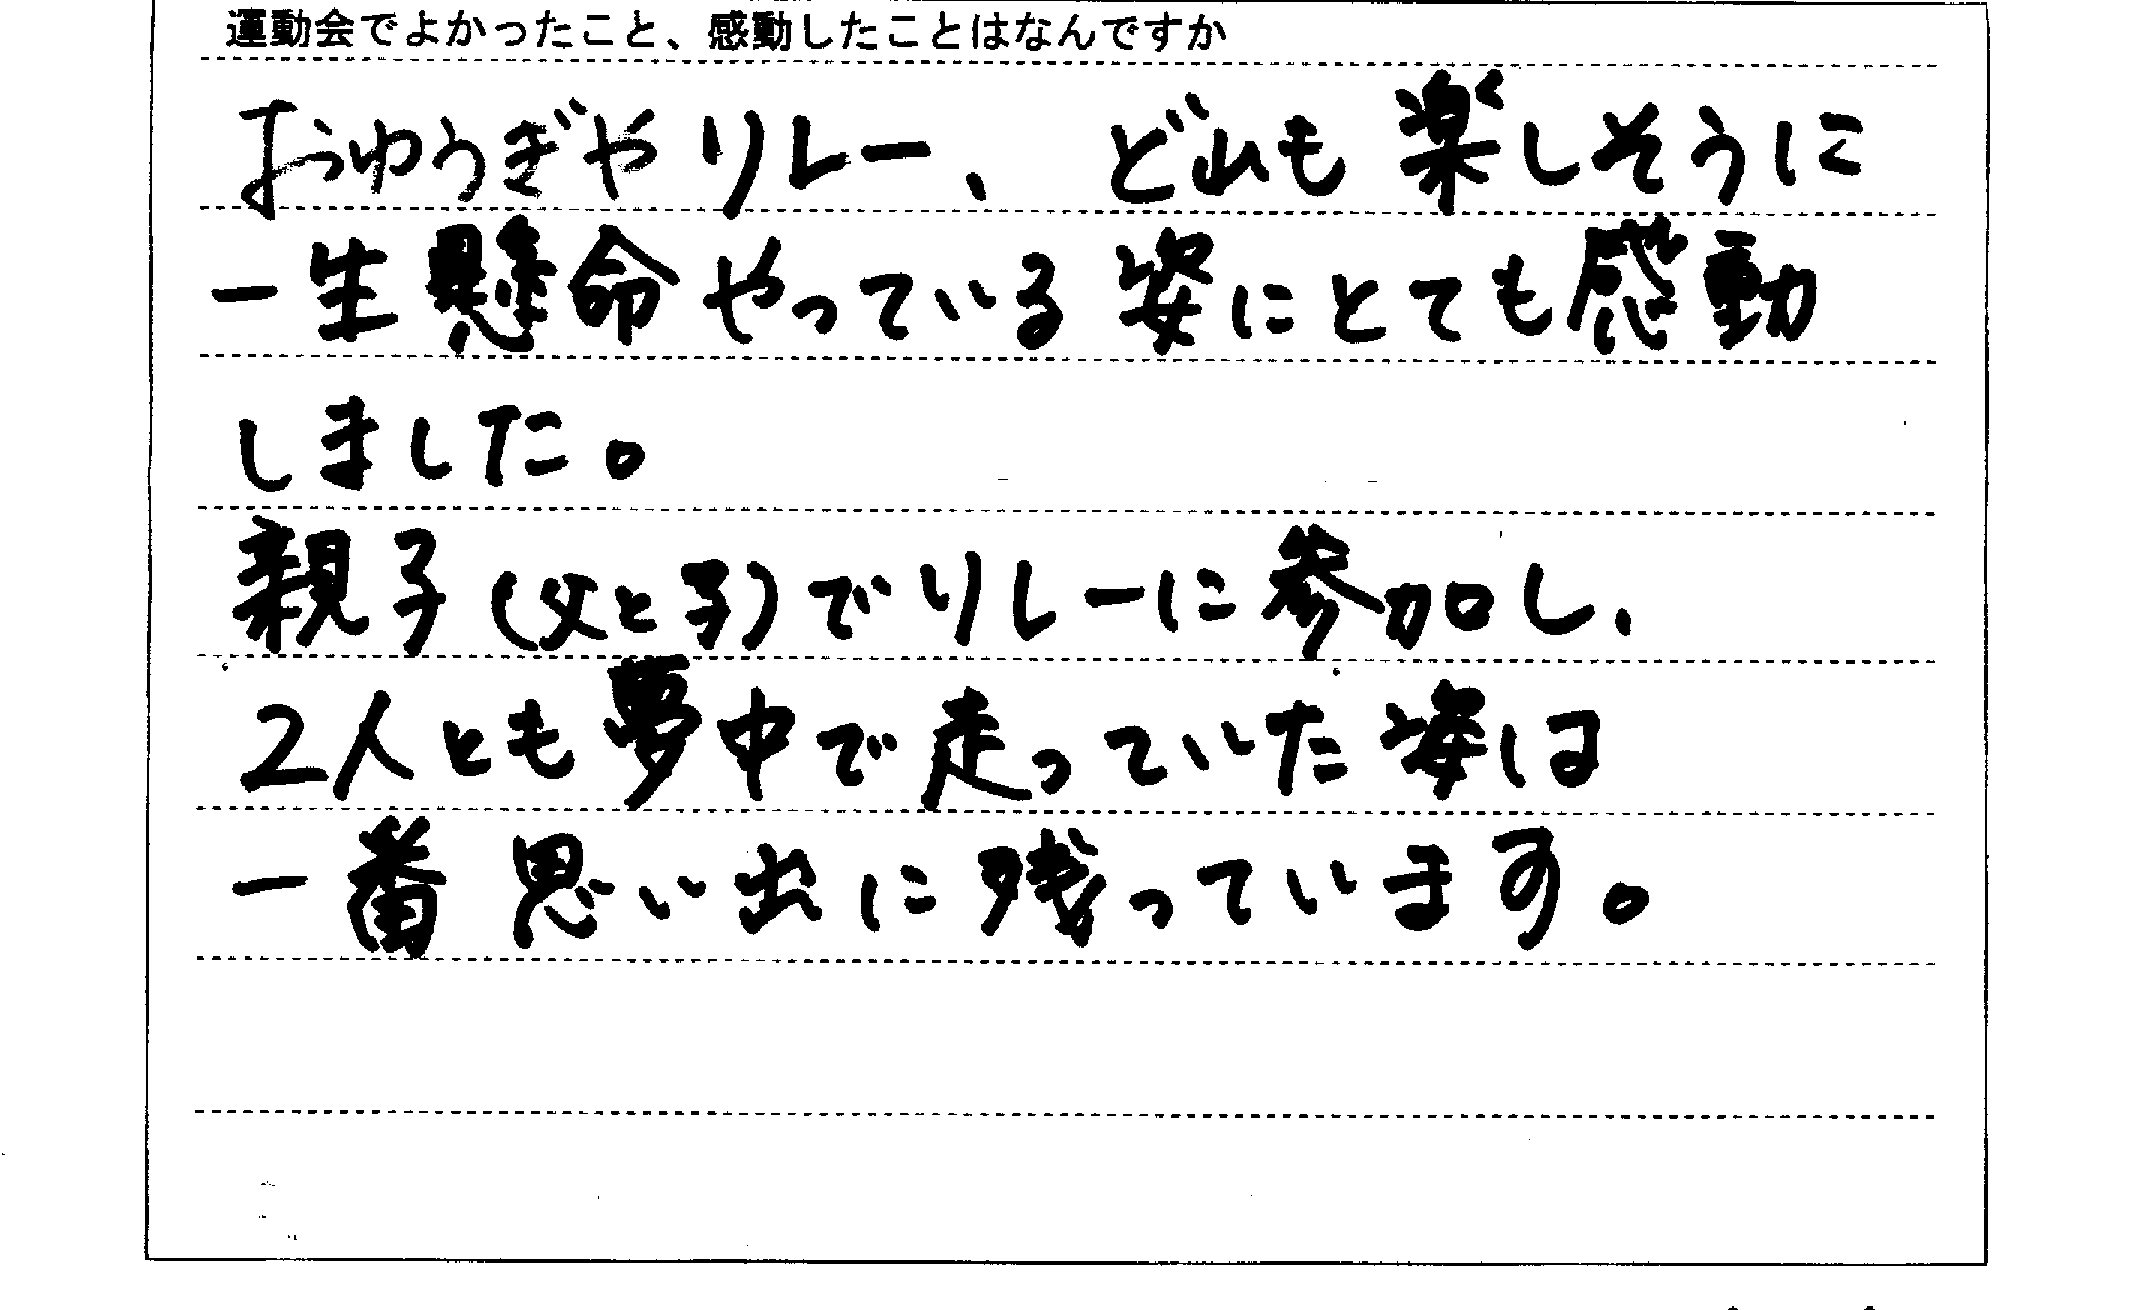 運動会でよかったこと、感動したことはなんですか
おゆうぎやリレー、どれも楽しそうに
一生懸命やっている姿にとても感動
しました。
親子(父と子)でリレーに参加し、
2人とも夢中で走っていた姿は
一番思い出に残っています。